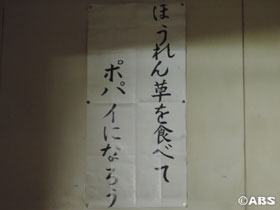 ほうれん草を食べて
ポパイになろう
©ABS